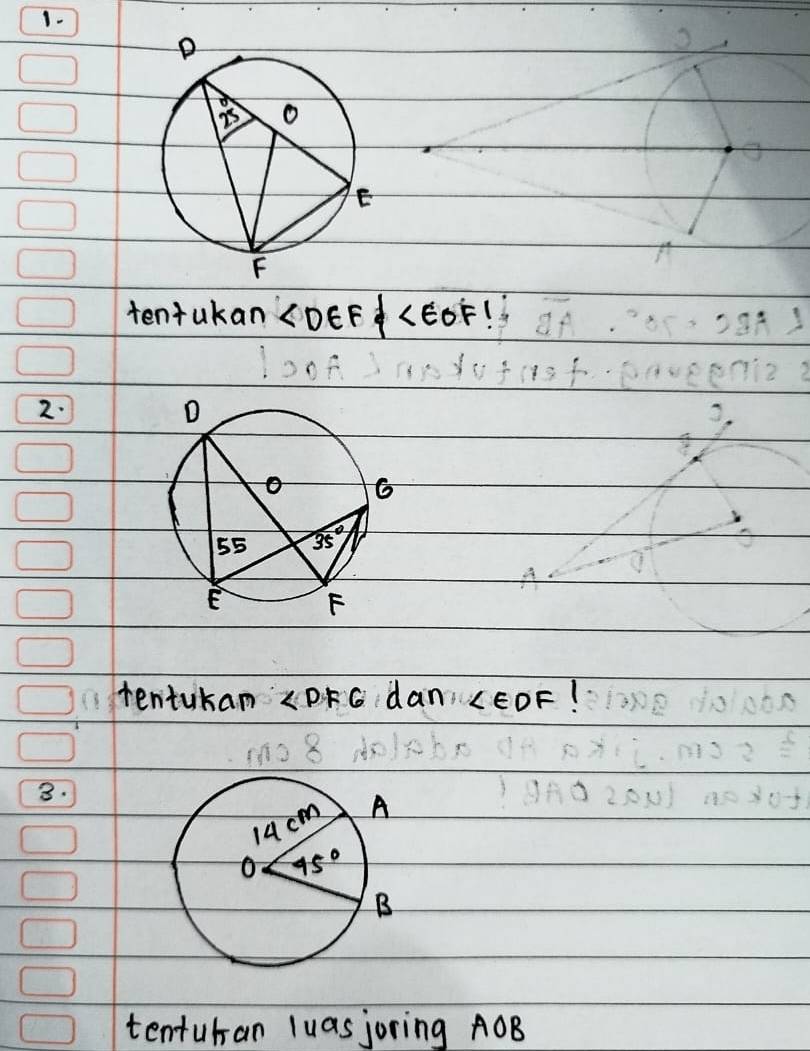 1.
D
25°
O
E
F
tentukan <DEF & <EOF!
2.
D
O
G
55
35°
E
F
tentukan <DFG dan <EDF!
3.
14 cm
A
O
45°
B
tentukan luas joring AOB